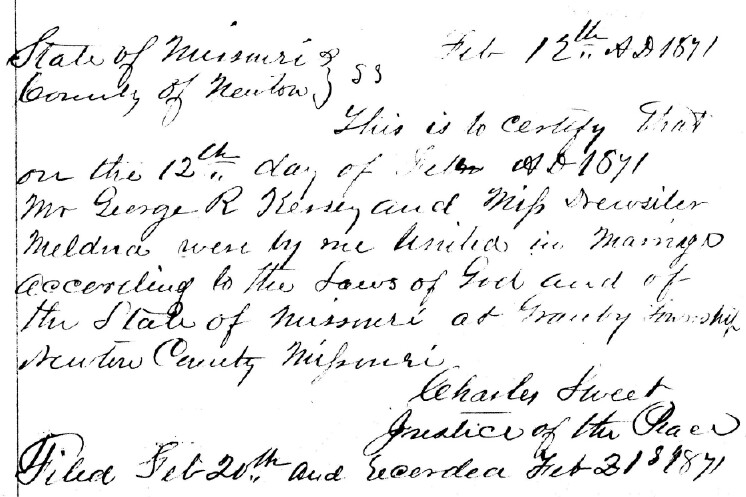 State of Missouri } Feb 12th A D 1871
County of Newton } SS
This is to certify That
on the 12th day of Feb A D 1871
Mr George R Kersey and Miss Drewsiler
Meldna were by me United in Marriage
according to the Laws of God and of
the State of Missouri at Granby Township
Newton County Missouri
Charles Sweet
Justice of the Peace
Filed Feb 20th and Recorded Feb 21st 1871